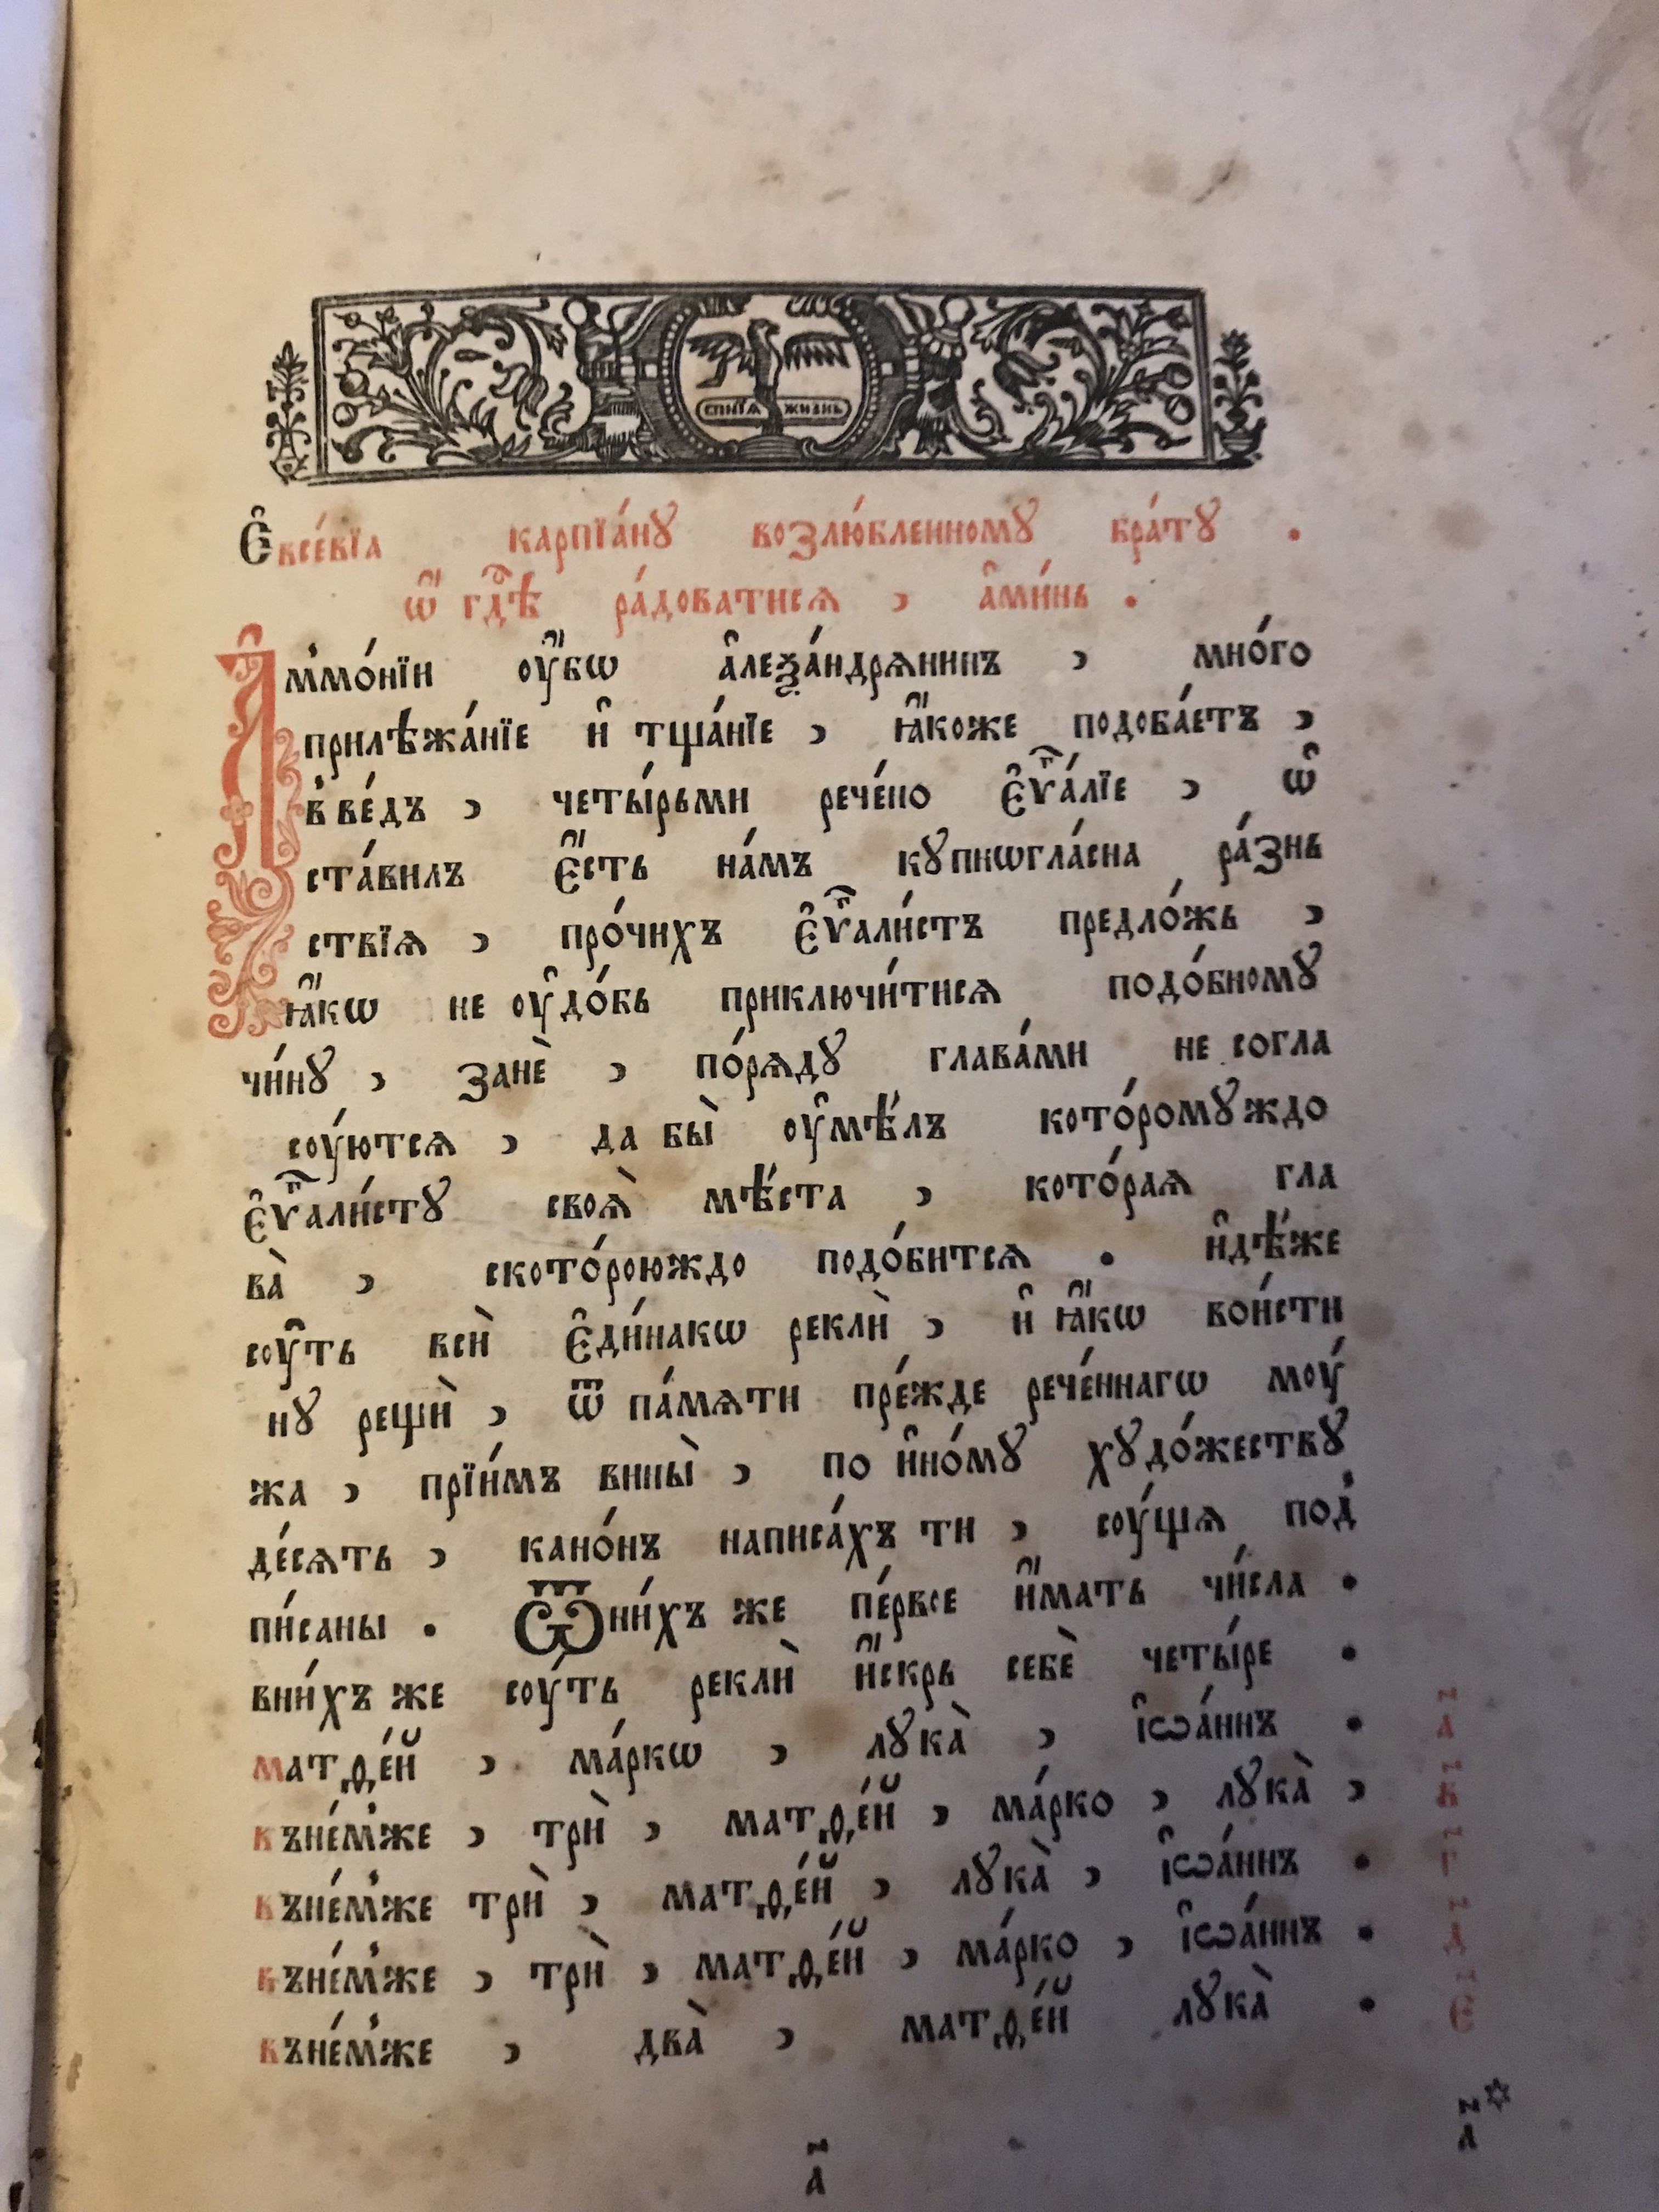 спитꙗ жизнь
Є҆все́вїа карпїа́нꙋ возлю́бленномꙋ бра́тꙋ .
ѡ҆́ гдⷭ҇ѣ ра́доватисѧ , а҆ми́нь .
А҆ммо́нїи ᲂу҆́бѡ а҆леѯа́ндрѧнинъ , мно́го
прилѣжа́нїе и҆ тща́нїе , ꙗ҆́коже подоба́етъ ,
вве́дъ , четы́рьми рече́но є҆ѵⷢ҇а́лїе , ѡ҆
ста́вилъ є҆́сть на́мъ кꙋпнѡгла́сна ра́знь
ствїѧ , про́чихъ є҆ѵⷢ҇али́стъ предло́жь ,
ꙗ҆́кѡ не ᲂу҆до́бь приключи́тисѧ подо́бномꙋ
чи́нꙋ , занѐ , по́рѧдꙋ глава́ми не согла
сꙋ́ютсѧ , да бы̀ ᲂу҆мѣ́лъ кото́ромꙋждо
є҆ѵⷢ҇али́стꙋ своѧ̀ мѣ́ста , кото́раѧ гла
ва̀ , ското́роюждо подо́битсѧ . и҆дѣ́же
соу́ть всѝ є҆ди́накѡ реклѝ , и҆ ꙗ҆́кѡ вои́сти
нꙋ рещѝ , ѿ па́мѧти пре́жде рече́ннагѡ моу́
жа , прїи́мъ вины̀ , по и҆но́мꙋ хꙋдо́жествꙋ
де́сѧть , кано́нъ написа́хъ ти , соу́щѧ под
пи́саны . Ѿни́хъ же пе́рвое и҆́мать чи́сла .
вни́хъ же соу́ть реклѝ и҆́скрь себѐ четы́ре .
матѳе́й , ма́ркѡ , лꙋка̀ , і҆ѡа́ннъ . а҃
въне́мже , трѝ , матѳе́й , ма́рко , лꙋка̀ , в҃
въне́мже трѝ , матѳе́й , лꙋка̀ , і҆ѡа́ннъ . г҃
въне́мже , трѝ , матѳе́й , ма́рко , і҆ѡа́ннъ . д҃
въне́мже , два̀ , матѳе́й лꙋка̀ . є҃
а҃ а҃